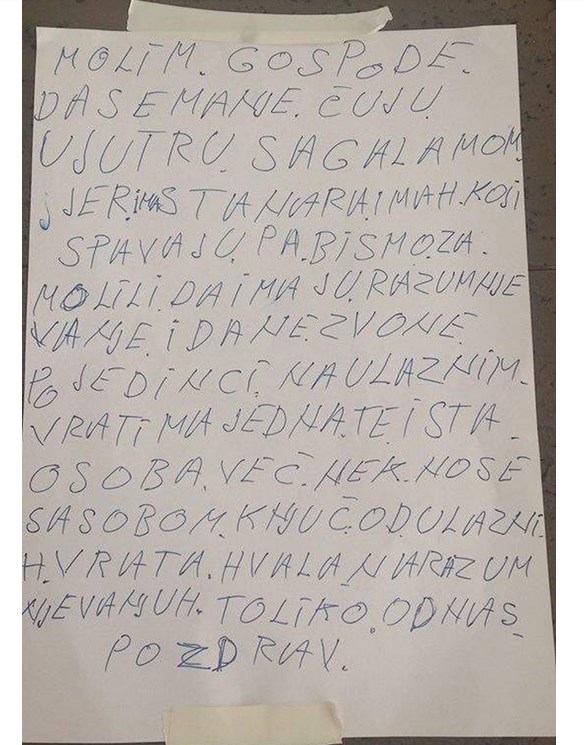 MOLIM. GOSPODE.
DA SE MANJE. ČUJU
UJUTRU. SA GALAMOM
JER IMA STANARA IMAH. KOJI
SPAVAJU. PA. BISMO ZA.
MOLILI. DA IMAJU. RAZUMNJE
VANJE. I DA NE. ZVONE
POJEDINCI. NA ULAZNIM.
VRATIMA JEDNA. TE. ISTA.
OSOBA. VEČ. NEK. NOSE
SA SOBOM. KNJUČ. OD. ULAZNI.
H. VRATA. HVALA NA RAZUM
NJEVANJUH. TOLIKO. OD NAS
POZDRAV.